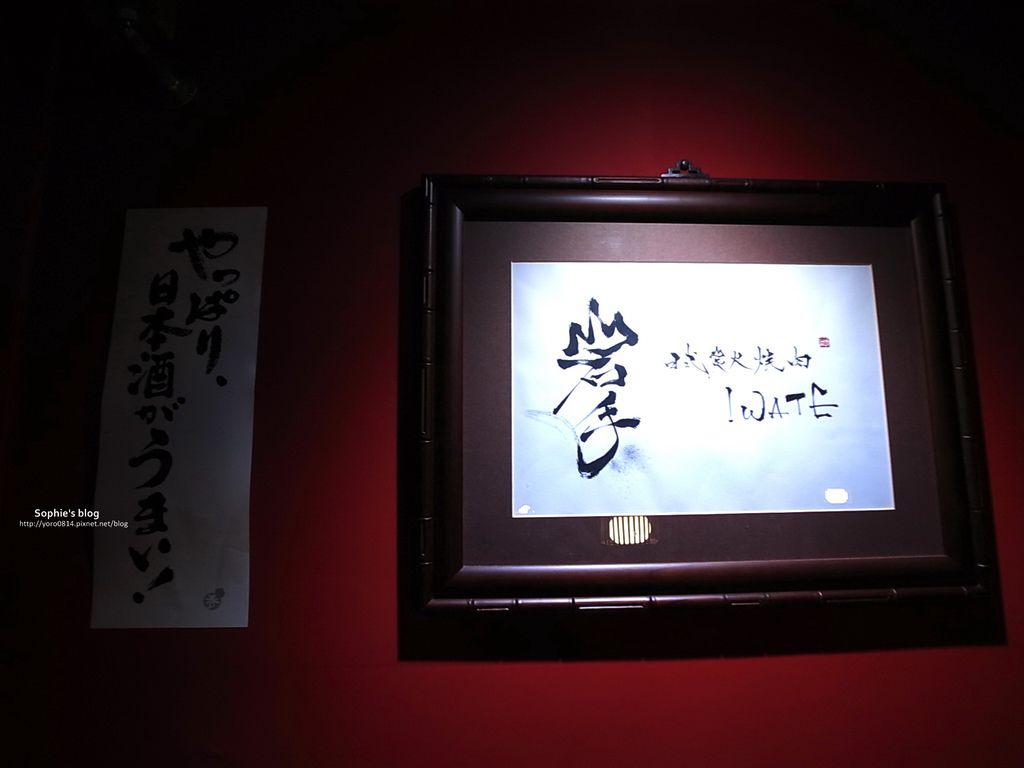 やっぱり、
日本酒がうまい!
岩手
炭火焼肉
IWATE
Sophie's blog
http://yoro0814.pixnet.net/blog